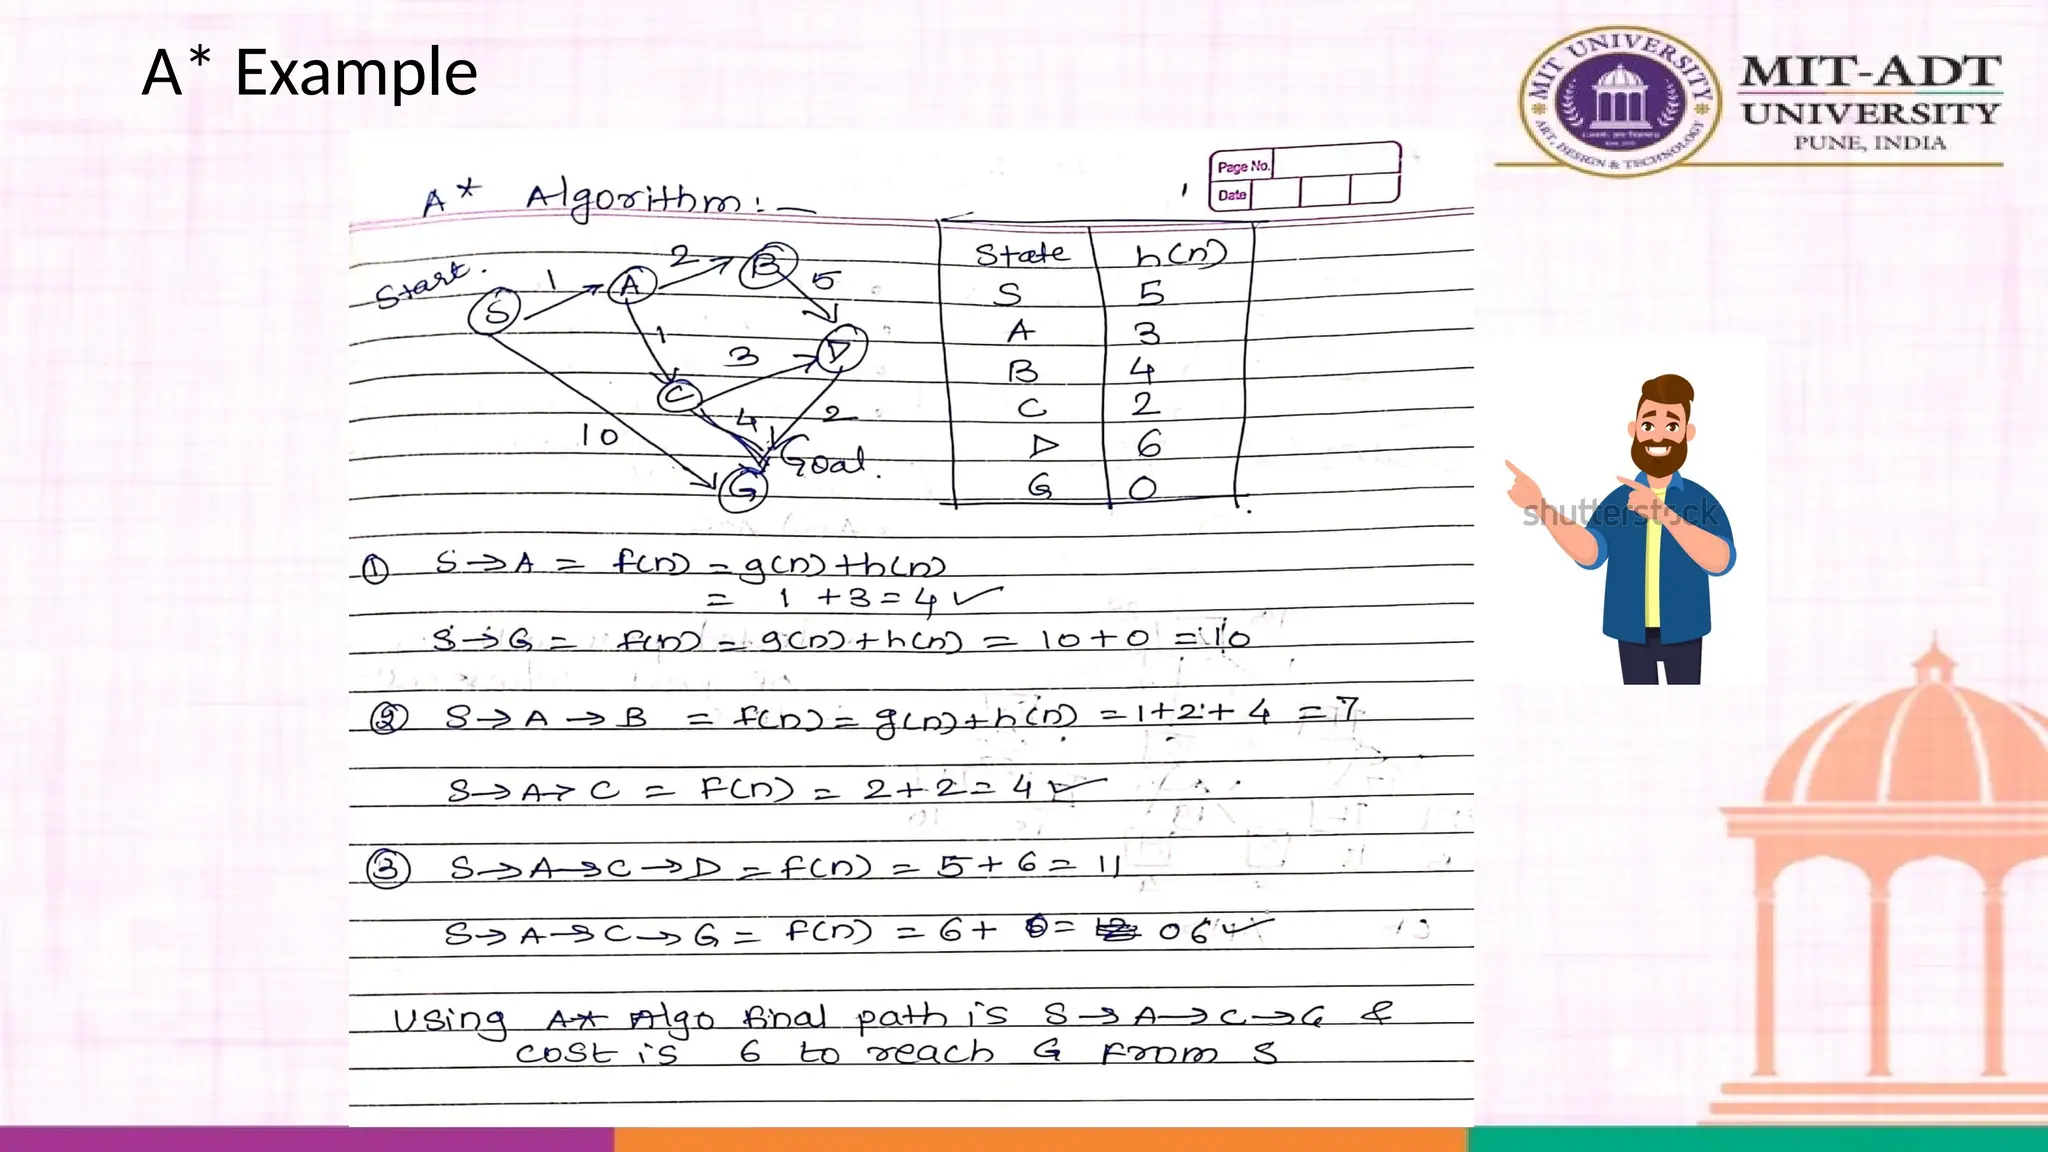 A* Example
MIT UNIVERSITY
ART, DESIGN & TECHNOLOGY
MIT-ADT
UNIVERSITY
PUNE, INDIA
Page No.
Date
A* Algorithm: —
Start.
S
1
A
2
B
5
1
3
D
C
4
2
10
Goal.
G
State h(n)
S 5
A 3
B 4
C 2
D 6
G 0
① S→A = f(n) = g(n)+h(n)
= 1 +3=4 ✓
S→G = f(n) = g(n)+h(n) = 10+0 = 10
② S→A→B = f(n) = g(n)+h(n) = 1+2+4 = 7
S→A→C = F(n) = 2+2=4 ✓
③ S→A→C→D = f(n) = 5+6=11
S→A→C→G = f(n) = 6+ 0= 06 ✓
Using A* Algo final path is S→A→C→G &
cost is 6 to reach G From S
shutterstock